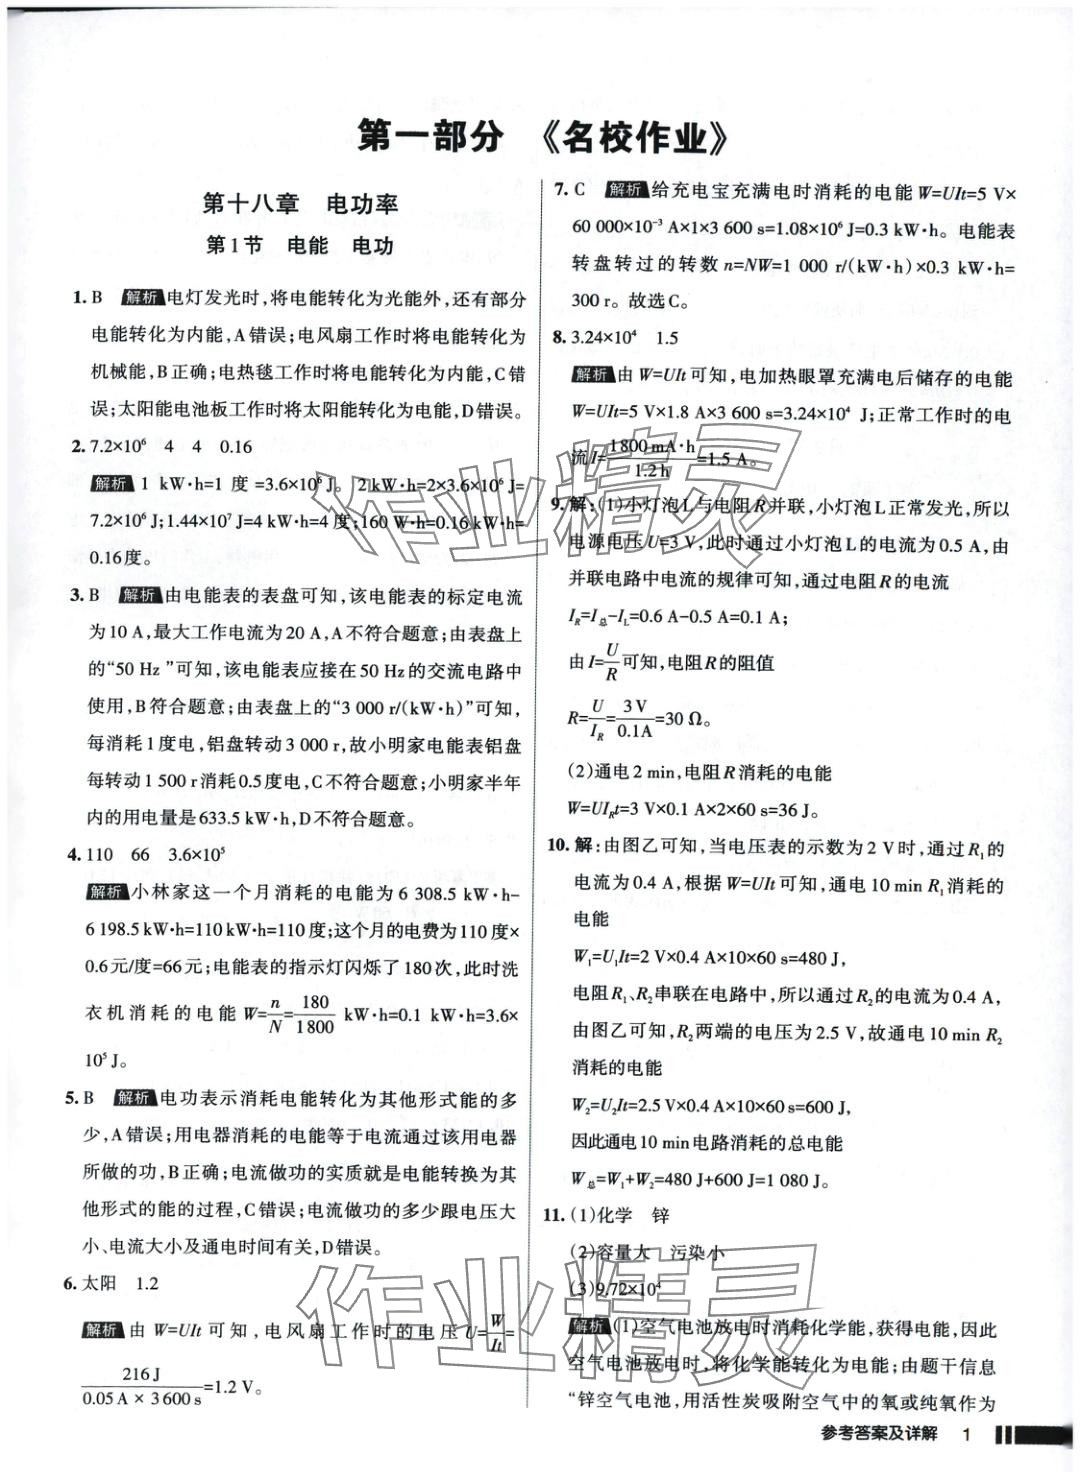 第一部分 《名校作业》
第十八章 电功率
第1节 电能 电功
1. B 解析 电灯发光时,将电能转化为光能外,还有部分
电能转化为内能,A错误;电风扇工作时将电能转化为
机械能,B正确;电热毯工作时将电能转化为内能,C错
误;太阳能电池板工作时将太阳能转化为电能,D错误。
2. 7.2×10⁶ 4 4 0.16
解析 1 kW·h=1 度 =3.6×10⁶ J。2 kW·h=2×3.6×10⁶ J=
7.2×10⁶ J;1.44×10⁷ J=4 kW·h=4 度;160 W·h=0.16 kW·h=
0.16度。
3. B 解析 由电能表的表盘可知,该电能表的标定电流
为10 A,最大工作电流为20 A,A不符合题意;由表盘上
的“50 Hz”可知,该电能表应接在50 Hz的交流电路中
使用,B符合题意;由表盘上的“3 000 r/(kW·h)”可知,
每消耗1度电,铝盘转动3 000 r,故小明家电能表铝盘
每转动1 500 r消耗0.5度电,C不符合题意;小明家半年
内的用电量是633.5 kW·h,D不符合题意。
4. 110 66 3.6×10⁵
解析 小林家这一个月消耗的电能为6 308.5 kW·h-
6 198.5 kW·h=110 kW·h=110度;这个月的电费为110度×
0.6元/度=66元;电能表的指示灯闪烁了180次,此时洗
衣机消耗的电能 W=n/N=180/1 800 kW·h=0.1 kW·h=3.6×
10⁵ J。
5. B 解析 电功表示消耗电能转化为其他形式能的多
少,A错误;用电器消耗的电能等于电流通过该用电器
所做的功,B正确;电流做功的实质就是电能转换为其
他形式的能的过程,C错误;电流做功的多少跟电压大
小、电流大小及通电时间有关,D错误。
6. 太阳 1.2
解析 由 W=UIt 可知,电风扇工作时的电压 U=W/It=
216 J/(0.05 A×3 600 s)=1.2 V。
7. C 解析 给充电宝充满电时消耗的电能 W=UIt=5 V×
60 000×10⁻³ A×1×3 600 s=1.08×10⁶ J=0.3 kW·h。电能表
转盘转过的转数 n=NW=1 000 r/(kW·h)×0.3 kW·h=
300 r。故选C。
8. 3.24×10⁴ 1.5
解析 由 W=UIt 可知,电加热眼罩充满电后储存的电能
W=UIt=5 V×1.8 A×3 600 s=3.24×10⁴ J;正常工作时的电
流 I=1 800 mA·h/1.2 h=1.5 A。
9. 解:(1)小灯泡L与电阻R并联,小灯泡L正常发光,所以
电源电压U=3 V,此时通过小灯泡L的电流为0.5 A,由
并联电路中电流的规律可知,通过电阻R的电流
I_R=I_总-I_L=0.6 A-0.5 A=0.1 A;
由 I=U/R 可知,电阻R的阻值
R=U/I_R=3 V/0.1 A=30 Ω。
(2)通电2 min,电阻R消耗的电能
W=UI_Rt=3 V×0.1 A×2×60 s=36 J。
10. 解:由图乙可知,当电压表的示数为2 V时,通过R₁的
电流为0.4 A,根据 W=UIt 可知,通电10 min R₁消耗的
电能
W₁=U₁It=2 V×0.4 A×10×60 s=480 J,
电阻R₁、R₂串联在电路中,所以通过R₂的电流为0.4 A,
由图乙可知,R₂两端的电压为2.5 V,故通电10 min R₂
消耗的电能
W₂=U₂It=2.5 V×0.4 A×10×60 s=600 J,
因此通电10 min电路消耗的总电能
W_总=W₁+W₂=480 J+600 J=1 080 J。
11. (1)化学 锌
(2)容量大 污染小
(3)9.72×10⁴
解析 (1)空气电池放电时消耗化学能,获得电能,因此
空气电池放电时,将化学能转化为电能;由题干信息
“锌空气电池,用活性炭吸附空气中的氧或纯氧作为
参考答案及详解 1
作业精灵
作业精灵